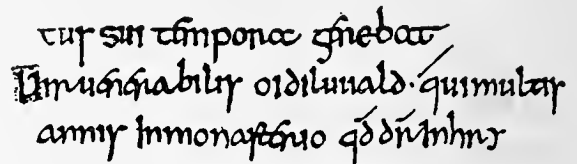 tus sui tempora gerebat
Uir uenerabilis oidiluuald · qui multis
annis in monasterio qd̄ dr̄ inhry